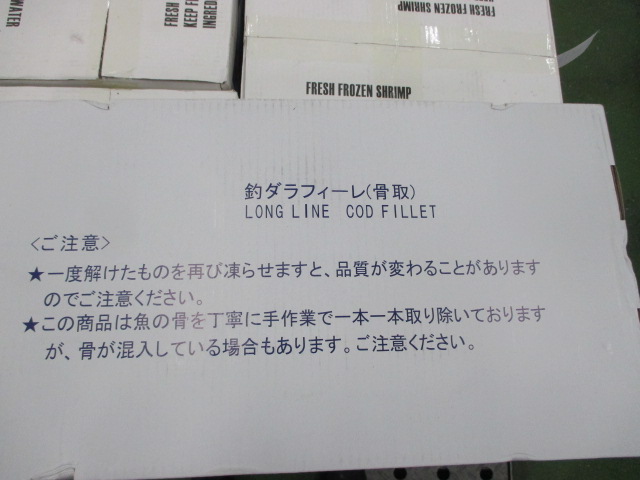 WATER
FRESH
KEEP F
INGRED
FRESH FROZEN SHRIMP
FRESH FROZEN SHRIMP
釣ダラフィーレ(骨取)
LONG LINE COD FILLET
<ご注意>
★一度解けたものを再び凍らせますと、品質が変わることがあります
のでご注意ください。
★この商品は魚の骨を丁寧に手作業で一本一本取り除いております
が、骨が混入している場合もあります。ご注意ください。